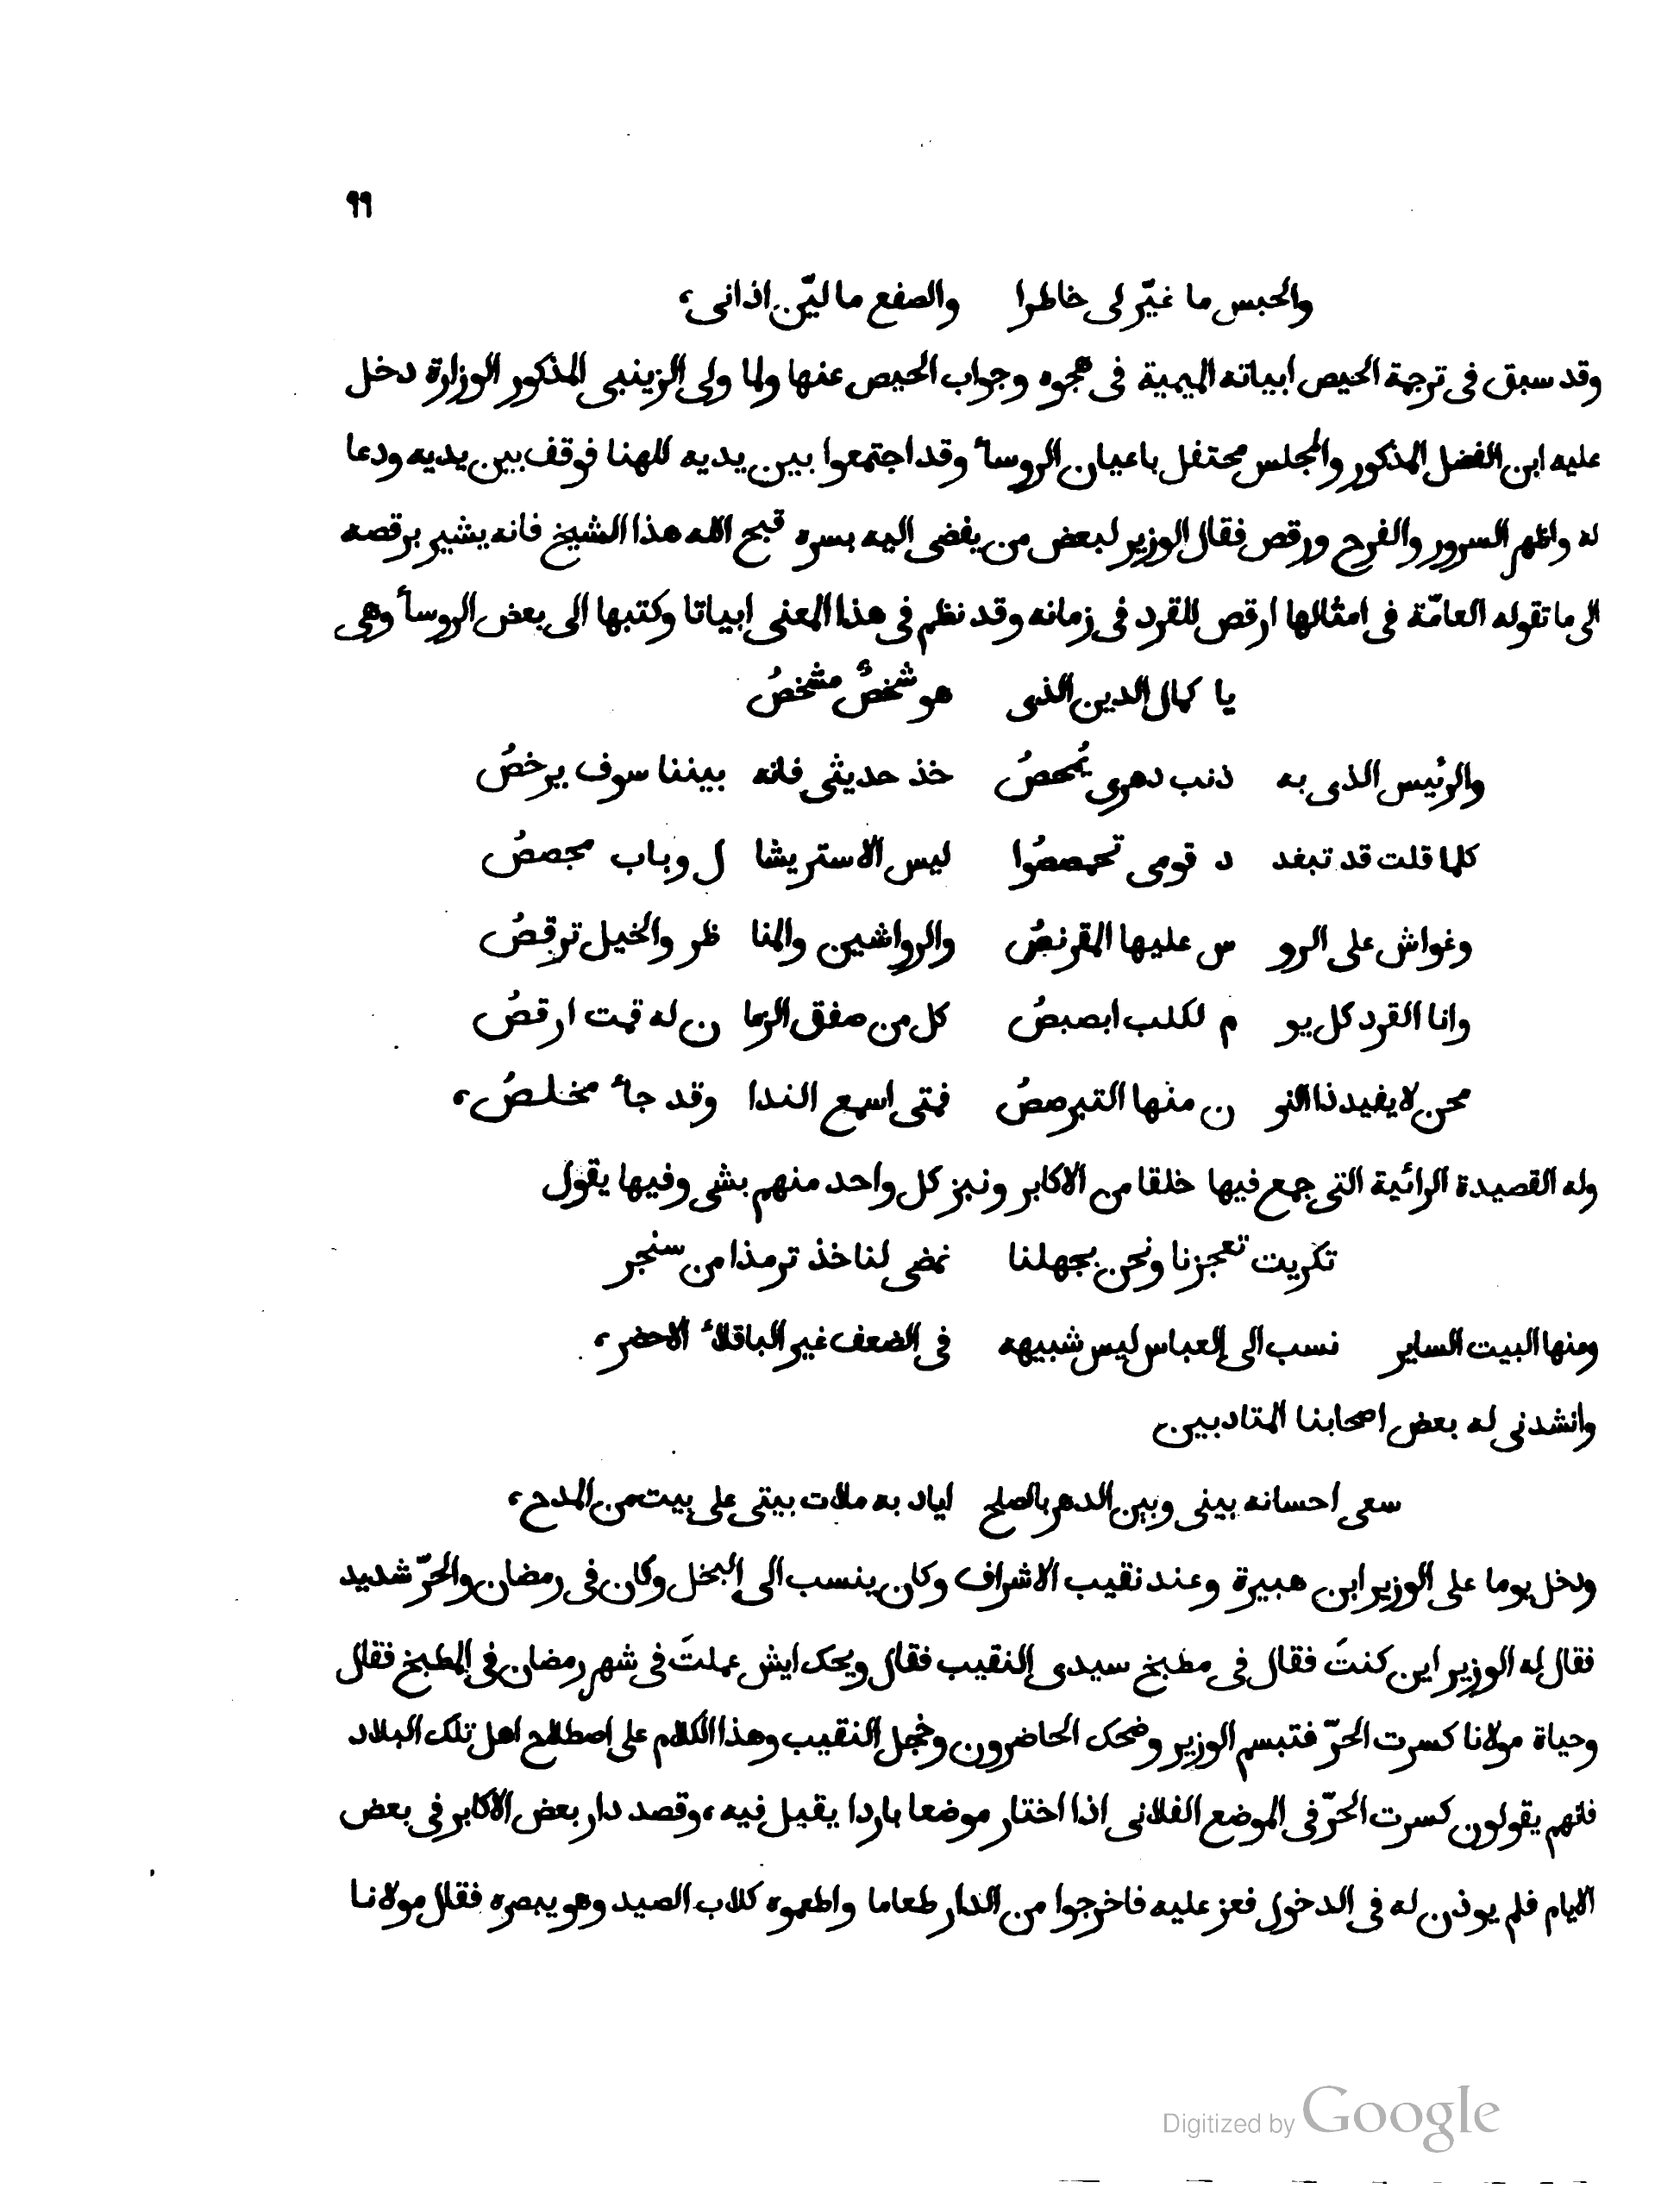 ٩٩
والحبس ما غيّر لى خاطرا والصفع ما ليّن اذانى،
وقد سبق فى ترجمة الحيص ابياته الميمية فى هجوه وجواب الحيص عنها ولما ولى الزينبى المذكور الوزارة دخل
عليه ابن الفضل المذكور والمجلس محتفل باعيان الروسأ وقد اجتمعوا بين يديه للهنا فوقف بين يديه ودعا
له واظهر السرور والفرح ورقص فقال الوزير لبعض من يفضى اليه بسره قبح الله هذا الشيخ فانه يشير برقصه
الى ما تقوله العامّة فى امثالها ارقص للقرد فى زمانه وقد نظم فى هذا المعنى ابياتا وكتبها الى بعض الروسأ وهى
يا كمال الدين الذى هو شخصٌ مشخصُ
والرئيس الذى به ذنب دهرى يُمحصُ خذ حديثى فانه بيننا سوف يرخصُ
كلما قلت قد تبغد د قومى تحمصصُوا ليس الا ستر يشا ل وباب مجصصُ
وغواش على الرو س عليها المقرنصُ والرواشين والمنا ظر والخيل ترقصُ
وانا القرد كل يو م لكلب ابصبصُ كل من صفق الزما ن له قمت ارقصُ
محن لا يفيد ذا النو ن منها التبرصصُ فمتى اسمع الندا وقد جأ مخلصُ،
وله القصيدة الرائية التى جمع فيها خلقا من الاكابر ونبز كل واحد منهم بشى وفيها يقول
تكريت تعجزنا ونحن بجهلنا نمضى لنا خذ ترمذا من سنجر
ومنها البيت الساير نسب الى العباس ليس شبيهه فى الضعف غير الباقلأ الاحضر،
وانشدنى له بعض اصحابنا المتادبين
سعى احسانه بينى وبين الدهر بالصلح اياد به ملات بيتى على بيت من المدح،
ودخل يوما على الوزير ابن هبيرة وعند نقيب الاشراف وكان ينسب الى البخل وكان فى رمضان والحرّ شديد
فقال له الوزير اين كنتَ فقال فى مطبخ سيدى النقيب فقال ويحك ايش عملتَ فى شهر رمضان فى المطبخ فقال
وحياة مولانا كسرت الحرّ فتبسم الوزير وضحك الحاضرون وخجل النقيب وهذا الكلام على اصطلاح اهل تلك البلاد
فانهم يقولون كسرت الحرّ فى الموضع الفلانى اذا اختار موضعا باردا يقيل فيه، وقصد دار بعض الاكابر فى بعض
الايام فلم يوذن له فى الدخول فعز عليه فاخرجوا من الدار طعاما واطعموه كلاب الصيد وهو يبصره فقال مولانا
Digitized by Google